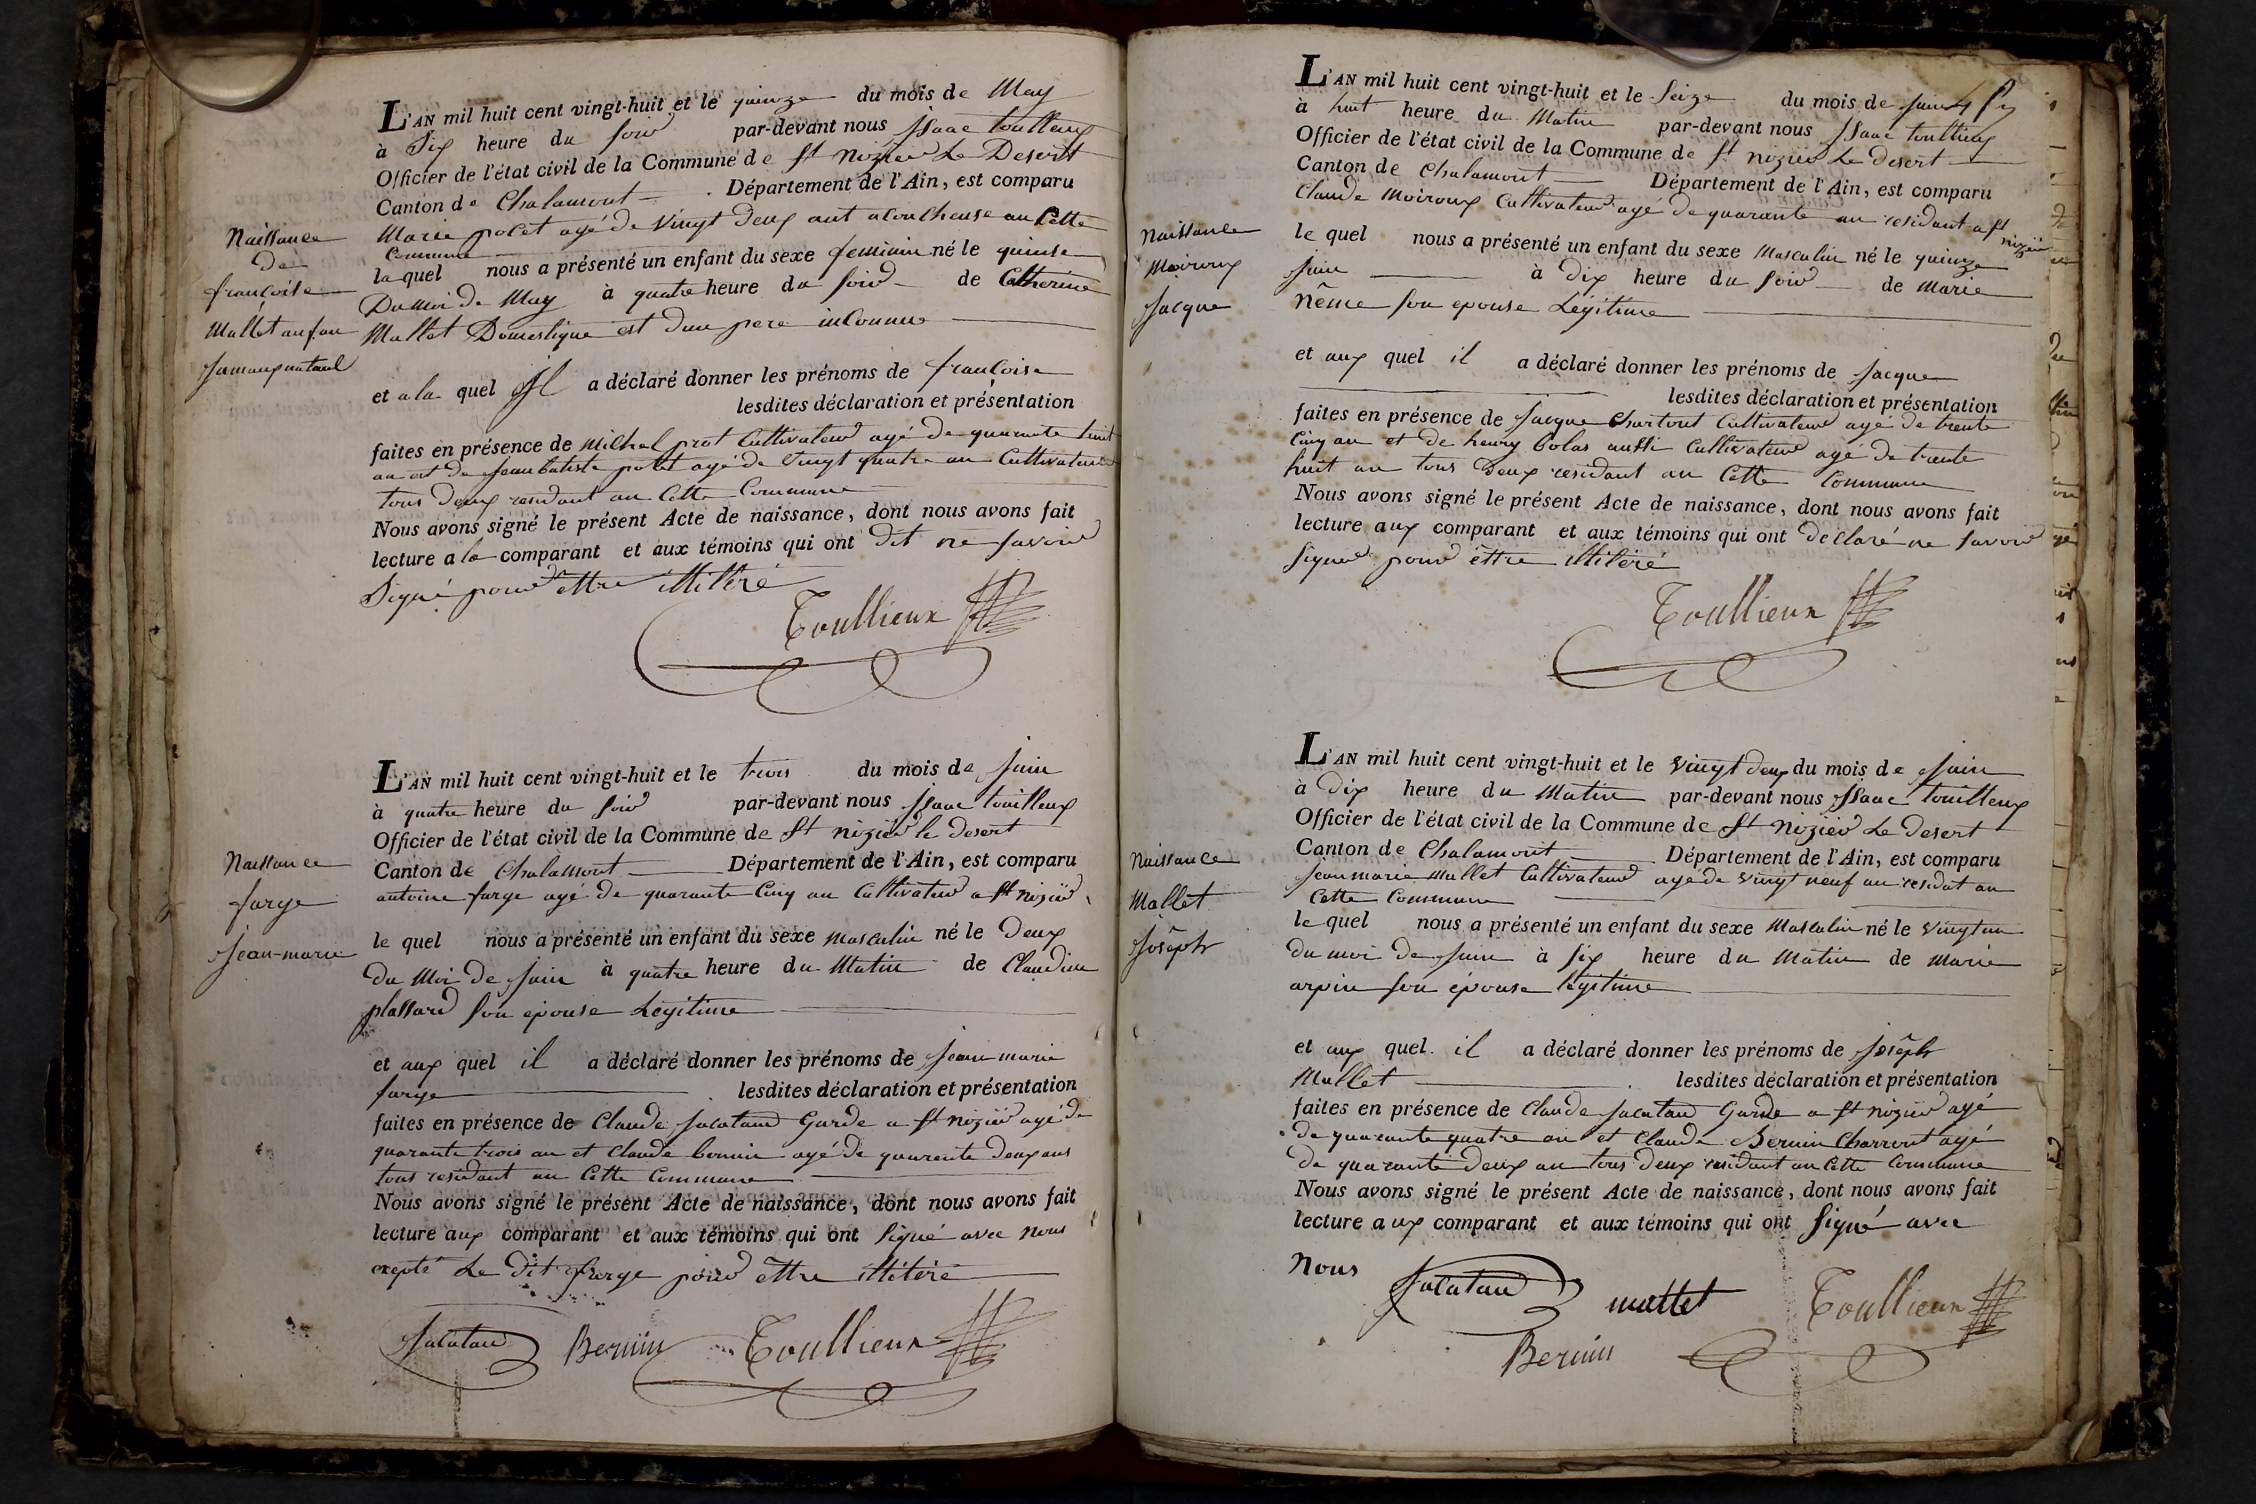 L'AN mil huit cent vingt-huit et le quinze du mois de May
à Six heure du soir par-devant nous Isaac toullieux
Officier de l'état civil de la Commune de St nizier Le Desert
Canton de Chalamont . Département de l'Ain, est comparu
Marie polet agé de vingt deux ant acoucheuse an Cette
Commune
la quel nous a présenté un enfant du sexe feminin né le quinse
Du moi de May à quatre heure du soir de Catherine
Mallet Domestique est dun pere inConnu
et a la quel Il a déclaré donner les prénoms de françoise
lesdites déclaration et présentation
faites en présence de Michel prot Cultivateur agé de quarante huit
an et de jean batiste polet agé de vingt quatre an Cultivateur
tous deux residant an Cette Commune
Nous avons signé le présent Acte de naissance, dont nous avons fait
lecture a la comparant et aux témoins qui ont dit ne savoir
Signé pour ettre illitéré
Toullieux
Naissance
de
françoise
Mallet anfan
naturel
L'AN mil huit cent vingt-huit et le trois du mois de juin
à quatre heure du soir par-devant nous Isaac touilleux
Officier de l'état civil de la Commune de St nizier le desert
Canton de Chalamont Département de l'Ain, est comparu
antoine farge agé de quarante Cinq an Cultivateur a St nizier
le quel nous a présenté un enfant du sexe masculin né le Deux
du Moi de juin à quatre heure du Matin de Claudine
plassard son epouse Légitime
et aux quel il a déclaré donner les prénoms de jean marie
farge lesdites déclaration et présentation
faites en présence de Claude jacatau Garde a St nizier agé de
quarante trois an et Claude bernin agé de quarente deux ans
tous residant an Cette Commune
Nous avons signé le présent Acte de naissance, dont nous avons fait
lecture aux comparant et aux témoins qui ont signé avec nous
exepté Le Dit farge pour ettre illitéré
Naissance
farge
jean-marie
Jacatau Bernin Toullieux
L'AN mil huit cent vingt-huit et le Seize du mois de juin
à huit heure du Matin par-devant nous Isaac toullieux
Officier de l'état civil de la Commune de St nizier Le desert
Canton de Chalamont Département de l'Ain, est comparu
Claude Moiroux Cultivateur agé de quarante an residant a St nizier
le quel nous a présenté un enfant du sexe Masculin né le quinze
juin à dix heure du soir de Marie
nême son epouse Légitime
et aux quel il a déclaré donner les prénoms de jacque
lesdites déclaration et présentation
faites en présence de jacque Cultivateur agé de trente
Cinq an et de henry Colas aussi Cultivateur agé de trente
huit an tous deux residant an Cette Commune
Nous avons signé le présent Acte de naissance, dont nous avons fait
lecture aux comparant et aux témoins qui ont déclaré ne savoir
signer pour êttre illitéré
Toullieux
Naissance
Moiroux
jacque
L'AN mil huit cent vingt-huit et le vingt deux du mois de juin
à Dix heure du Matin par-devant nous Isaac touilleux
Officier de l'état civil de la Commune de St nizier Le desert
Canton de Chalamont . Département de l'Ain, est comparu
jean marie Mallet Cultivateur agé de vingt neuf an residat an
Cette Commune
le quel nous a présenté un enfant du sexe Masculin né le vingt un
du moi de juin à six heure du Matin de Marie
arpin son épouse légitime
et aux quel il a déclaré donner les prénoms de joséph
Mallet lesdites déclaration et présentation
faites en présence de Claude jacatau Garde a St nizier agé
de quarante quatre an et Claude Bernin Charront agé
de quarante deux an tous deux residant an Cette Commune
Nous avons signé le présent Acte de naissance, dont nous avons fait
lecture aux comparant et aux témoins qui ont signé avec
Nous
Jacatau mallet Toullieux
Bernin
Naissance
Mallet
Joséph